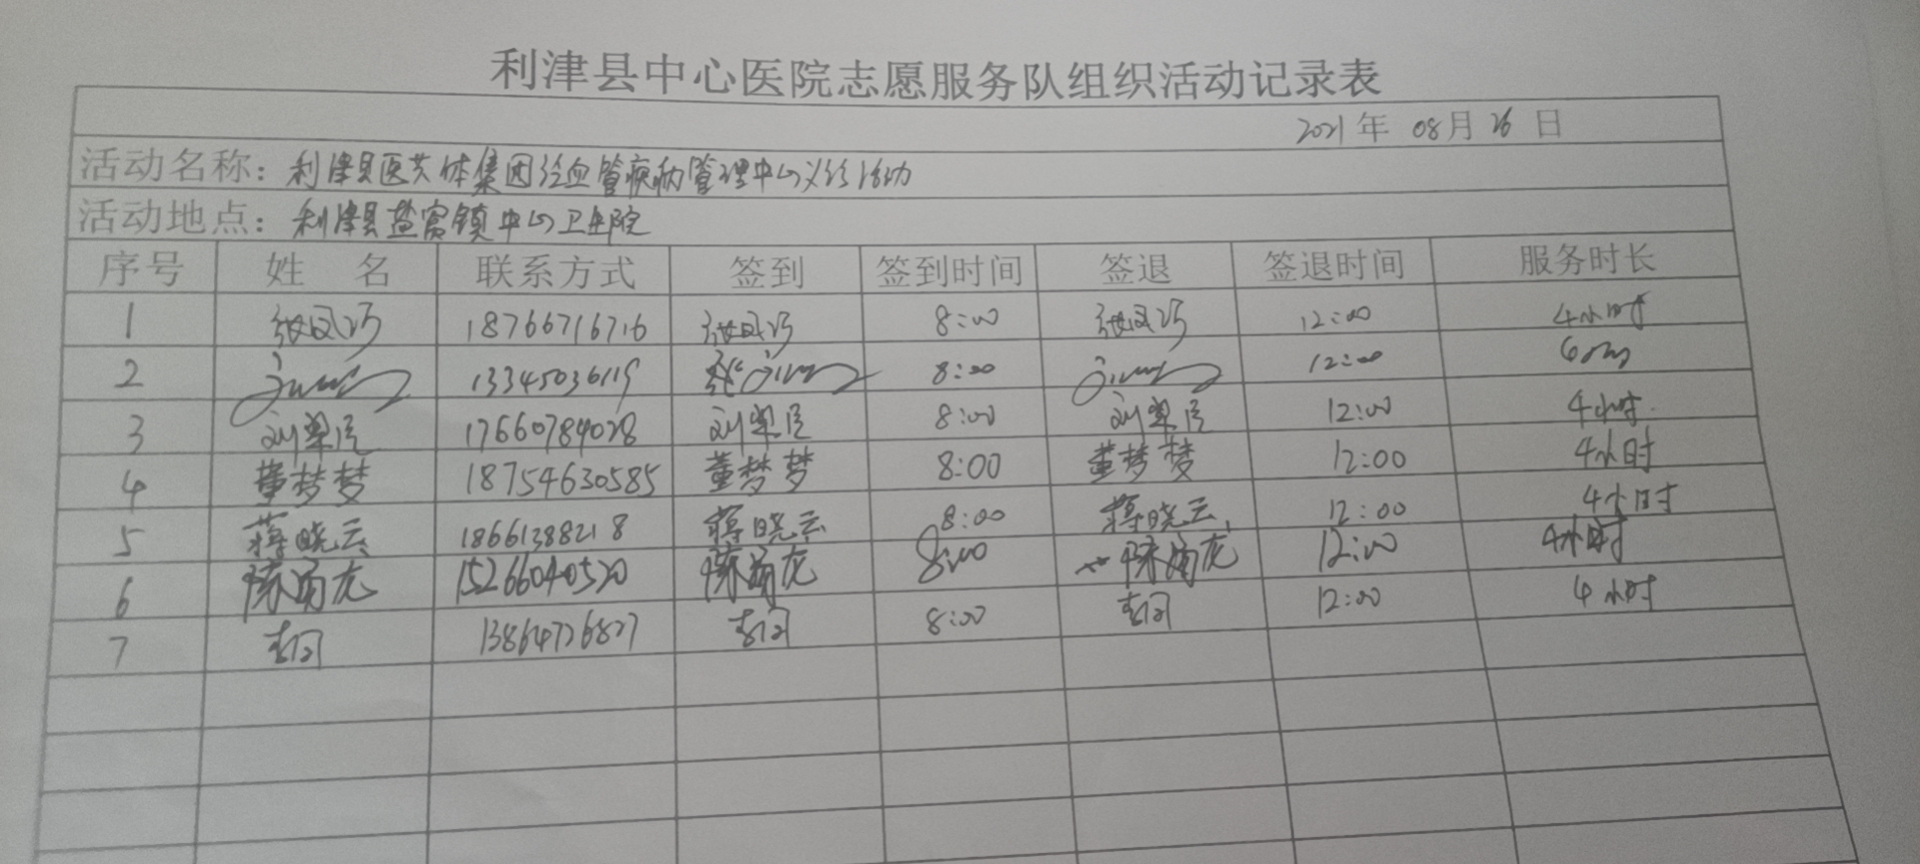 利津县中心医院志愿服务队组织活动记录表
2021年 08月 26 日
活动名称：利津县医共体集团心血管疾病管理中心义诊活动
活动地点：利津县盐窝镇中心卫生院
序号 姓 名 联系方式 签到 签到时间 签退 签退时间 服务时长
1 张凤巧 18766716716 张凤巧 8:00 张凤巧 12:00 4小时
2 13345036119 8:00 12:00
3 17660784028 8:00 12:00 4小时
4 董梦梦 18754630585 董梦梦 8:00 董梦梦 12:00 4小时
5 蒋晓云 18661388218 蒋晓云 8:00 蒋晓云 12:00 4小时
6 15266040520 8:00 12:00 4小时
7 13864726827 8:00 12:00 4小时